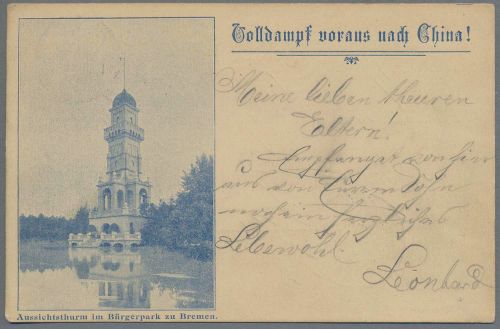 Volldampf voraus nach China!
Meine lieben theuren
Eltern!
Empfanget von hier
aus von Eurem Sohn
noch ein herzliches
Lebewohl.
Leonhard
Aussichtsthurm im Bürgerpark zu Bremen.